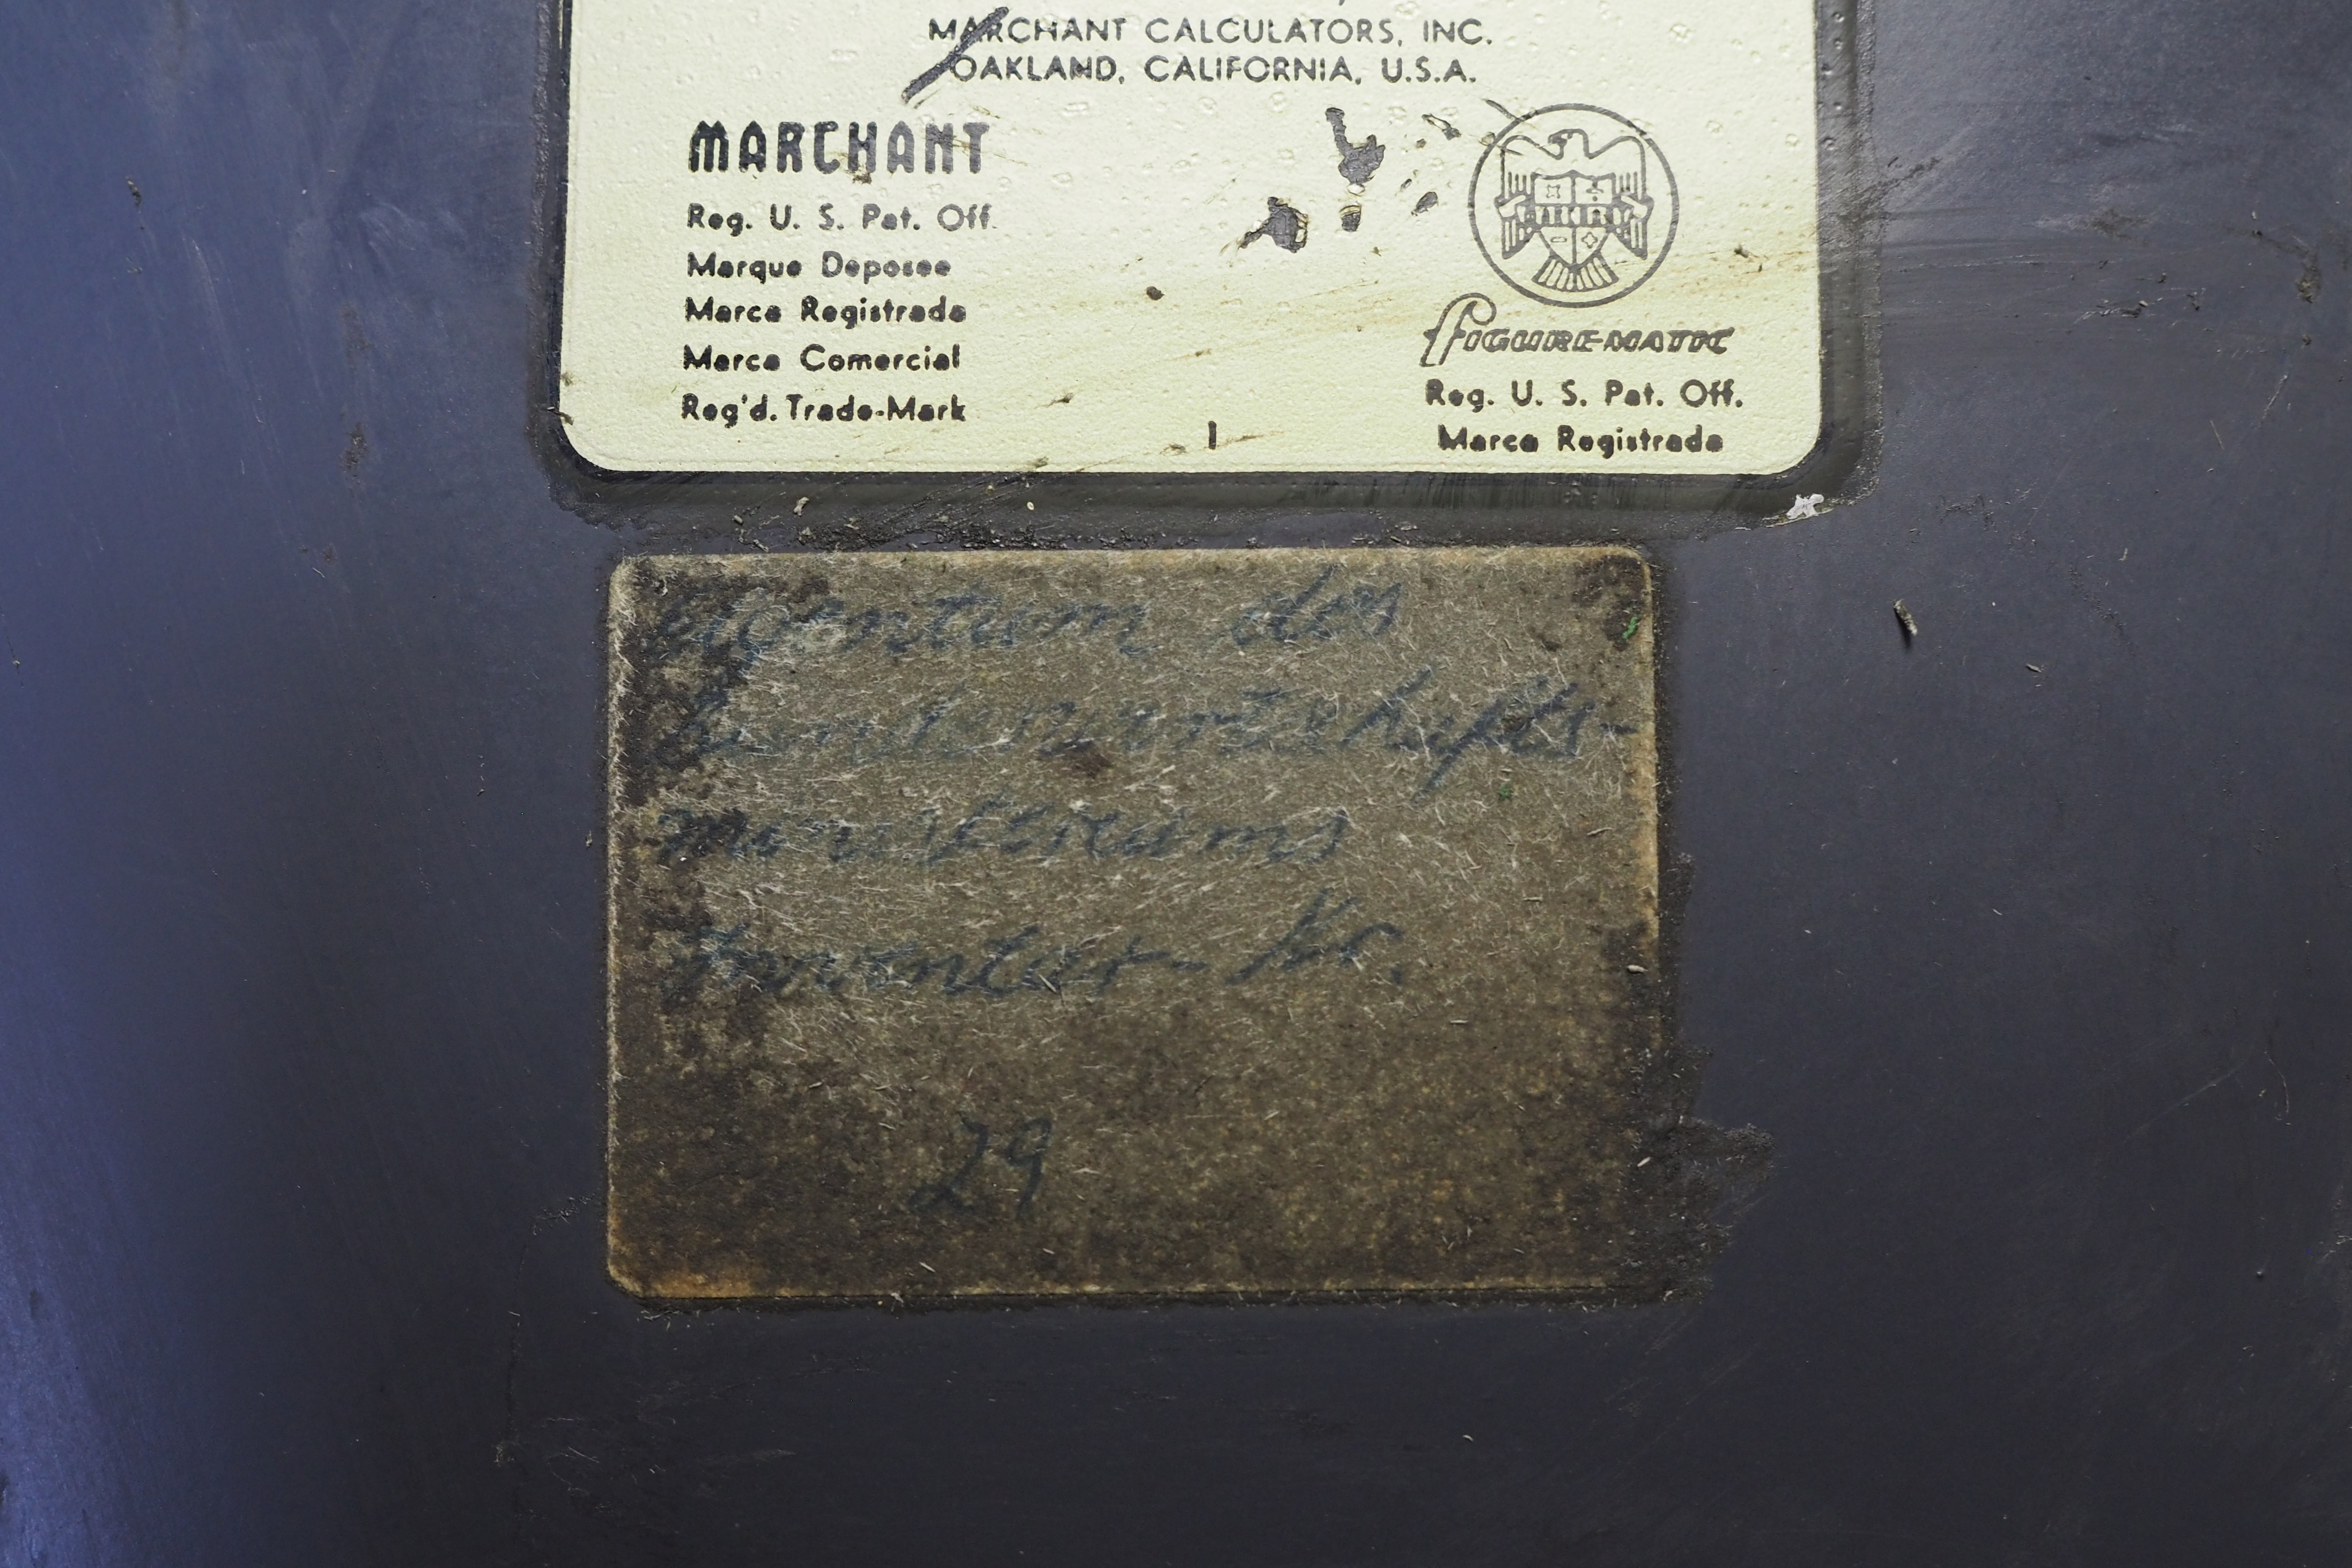 MARCHANT CALCULATORS, INC.
OAKLAND, CALIFORNIA, U.S.A.
MARCHANT
Reg. U. S. Pat. Off.
Marque Deposee
Marca Registrada
Marca Comercial
Reg'd. Trade-Mark
MARCHANT
FIGUREMATIC
Reg. U. S. Pat. Off.
Marca Registrada
eigentum des
bundeswirtschafts-
ministeriums
Inventar-Nr.
29